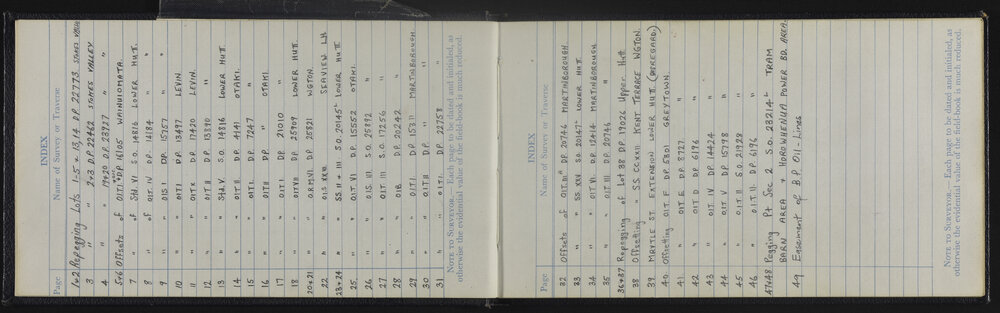 INDEX
Page Name of Survey or Traverse
1+2 Repegging Lots 1-5 + 13,14 D.P. 22773 STOKES VALLEY
3 " " 2+3 D.P. 22462 STOKES VALLEY
4 " " 19+20 D.P. 23927 " "
5+6 Offsets of O.I.T. I D.P. 16105 WAINUIOMATA.
7 " of Std. VI S.O. 14816 LOWER HUTT.
8 " of O.I.T. IV D.P. 14184 " "
9 " " O.I.S I D.P. 15757 "
10 " " O.I.T. I D.P. 13497 LEVIN.
11 " " O.I.T. X D.P. 17420 LEVIN.
12 " " O.I.T. II D.P. 13890 "
13 " " Std. V S.O. 14816 LOWER HUTT.
14 " " O.I.T. II D.P. 4141 OTAKI.
15 " " O.I.T. I D.P. 7247 "
16 " " O.I.T. II D.P. " OTAKI.
17 " " O.I.T. I D.P. 21010 "
18 " " O.I.T. VII D.P. 25909 LOWER HUTT
20+21 " " O.R.M. VI D.P. 25821 WGTON.
22 " " O.I.S XXII SEAVIEW L.H.
23+24 " " SS II + III S.O. 20145 LOWER HUTT.
25 " " O.I.T. VI D.P. 15552 OTAKI.
26 " " O.I.S. III S.O. 25892 "
27 " " O.I.T. III S.O. 17256 "
28 " " O.I.B D.P. 20242
29 " " O.I.T. I D.P. 15311 MARTINBOROUGH
30 " " O.I.T. II D.P. " "
31 " " O.I.T. I D.P. 22758
NOTE TO SURVEYOR.—Each page to be dated and initialed, as
otherwise the evidential value of the field-book is much reduced.
INDEX
Page Name of Survey or Traverse
32 Offsets of O.I.T. III D.P. 20746 MARTINBOROUGH
33 " " SS. XXV S.O. 20147 LOWER HUTT.
34 " " O.I.T. VI D.P. 12414 MARTINBOROUGH
35 " " O.I.T. III D.P. 20746 "
36+37 Repegging of Lot 38 D.P. 19026 Upper Hutt
38 Offsetting " S.S. CCXXII KENT TERRACE WGTON.
39 MARTLE ST. EXTENSION LOWER HUTT. (DISREGARD)
40 Offsetting O.I.T. F D.P. 5801 GREYTOWN
41 " O.I.T. E D.P. 8727 "
42 " O.I.T. D D.P. 6196 "
43 " O.I.T. IV D.P. 14424 "
44 " O.I.T. V D.P. 15798 "
45 " O.I.T. II S.O. 21928 "
46 " O.I.T. III D.P. 6196 "
47+48 Pegging Pt Sec 2 S.O. 28214 TRAM
BARN AREA + HOROWHENUA POWER BD. AREA.
49 Easement of B.P. Oil-Lines
NOTE TO SURVEYOR.—Each page to be dated and initialed, as
otherwise the evidential value of the field-book is much reduced.